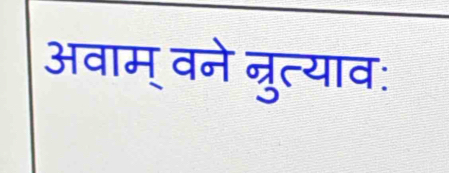 अवाम् वने न्रुत्यावः